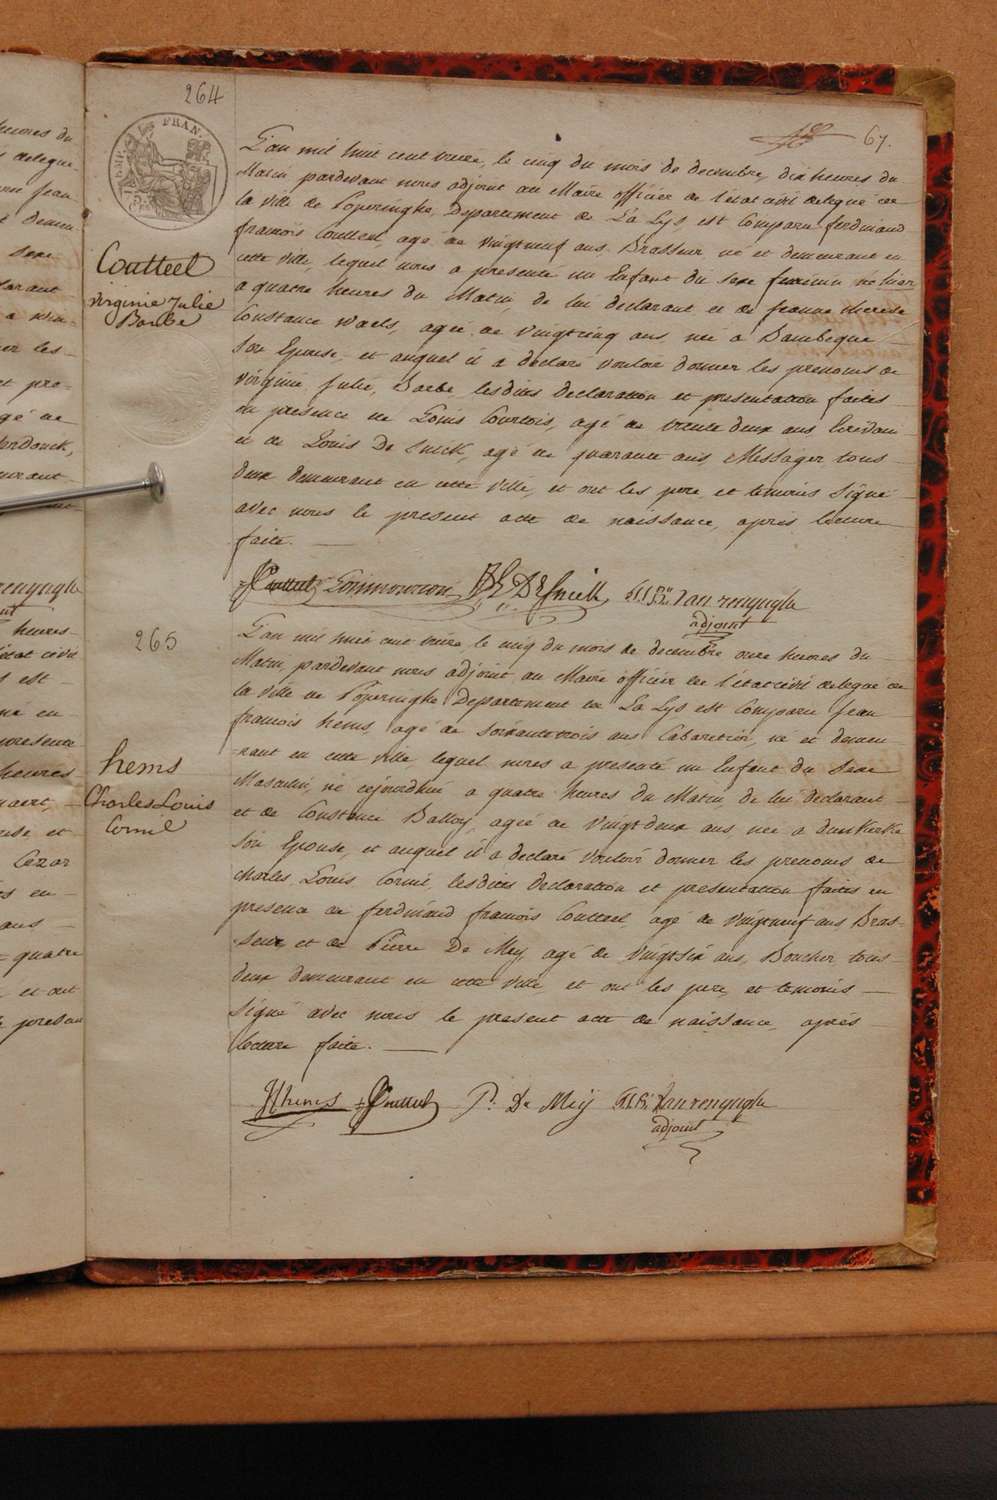 264
67.
EMP. FRAN.
Coutteel
Virginie Julie
Barbe
L'an mil huit cent treize, le cinq du mois de decembre, dix heures du
Matin, pardevant nous adjoint au Maire officier de l'etat civil delegué de
la ville de Poperinghe, Departement de La Lys, est Comparu ferdinand
francois Coutteel, agé de vingtneuf ans, Brasseur, né et demeurant en
cette ville, lequel nous a presenté un Enfant du sexe feminin né hier
a quatre heures du Matin, de lui declarant et de jeanne therese
Constance Waels, agée de vingtcinq ans, née a Bambeque
son Epouse, et auquel il a declaré vouloir donner les prenoms de
Virginie, Julie, Barbe, lesdites declaration et presentation faites
en presence de Louis Courtois, agé de trente deux ans,
et de Louis De Snick, agé de quarante ans, Messager, tous
deux demeurant en cette ville, et ont les pere et temoins signé
avec nous le present acte de naissance, apres lecture
faite.
Coutteel L. De Snick Van renynghe
adjoint
265
hems
Charles Louis
Cornil
L'an mil huit cent treize le cinq du mois de decembre onze heures du
Matin, pardevant nous adjoint au Maire officier de l'etat civil delegué de
la ville de Poperinghe Departement de La Lys est Comparu jean
francois hems, agé de soixantetrois ans Cabaretier, né et demeu-
-rant en cette ville lequel nous a presenté un Enfant du Sexe
Masculin, né cejourdhui a quatre heures du Matin, de lui declarant
et de Constance Balloy, agée de vingtdeux ans, née a dunkerke
son Epouse, et auquel il a declaré vouloir donner les prenoms de
Charles Louis Cornil, lesdites declaration et presentation faites en
presence de ferdinand francois Coutteel, agé de vingtneuf ans Bras-
-seur et de Pierre De Mey agé de vingtsix ans, Boucher, tous
deux demeurant en cette ville, et ont les pere et temoins
signé avec nous le present acte de naissance, apres
lecture faite.
J f hems Coutteel P. De Meij Van renynghe
adjoint